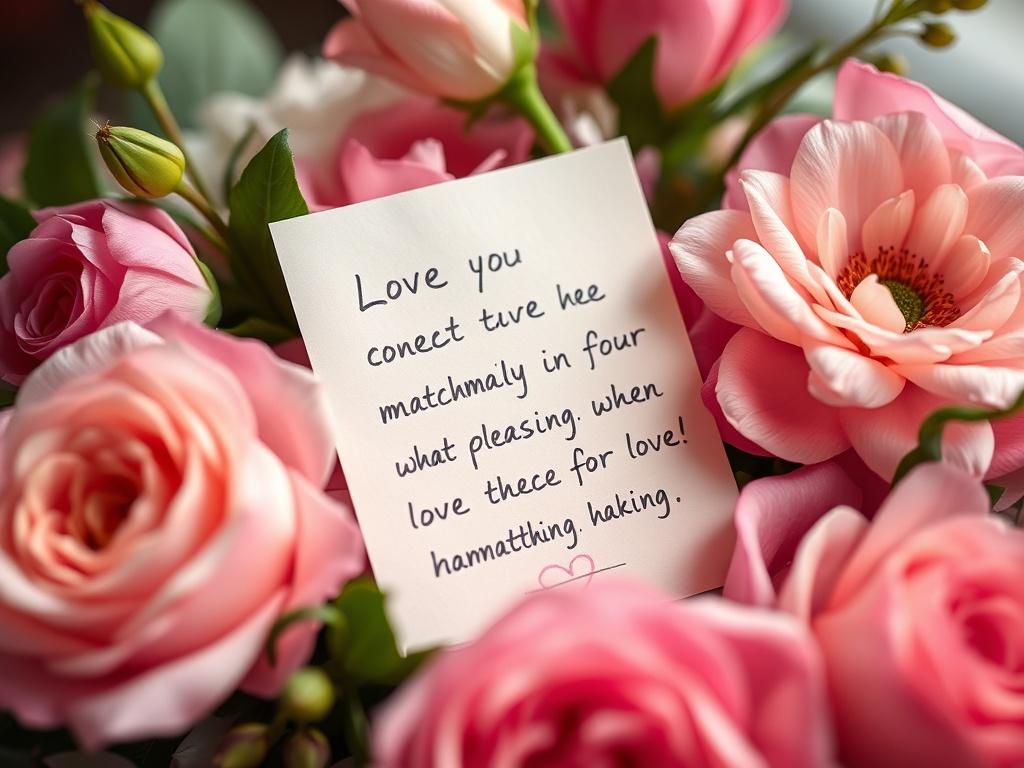 Love you
conect tuve hee
matchmaily in four
what pleasing. when
love thece for love!
hamatthing. haking.